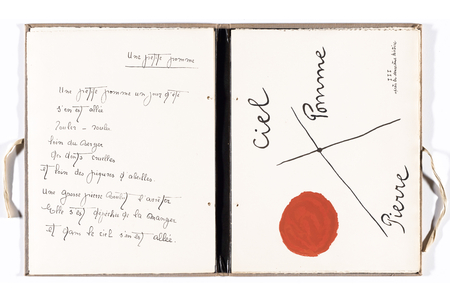 Une petite pomme
Une petite pomme un jour d'été
s'en est allée
Roulin - roula
loin du verger
des dents cruelles
et loin des piqures d'abeilles
Une grosse pierre l'arrêter
Elle s'est dépechée de la manger
et dans le ciel s'en est allée.
ciel
Pomme
Pierre
III